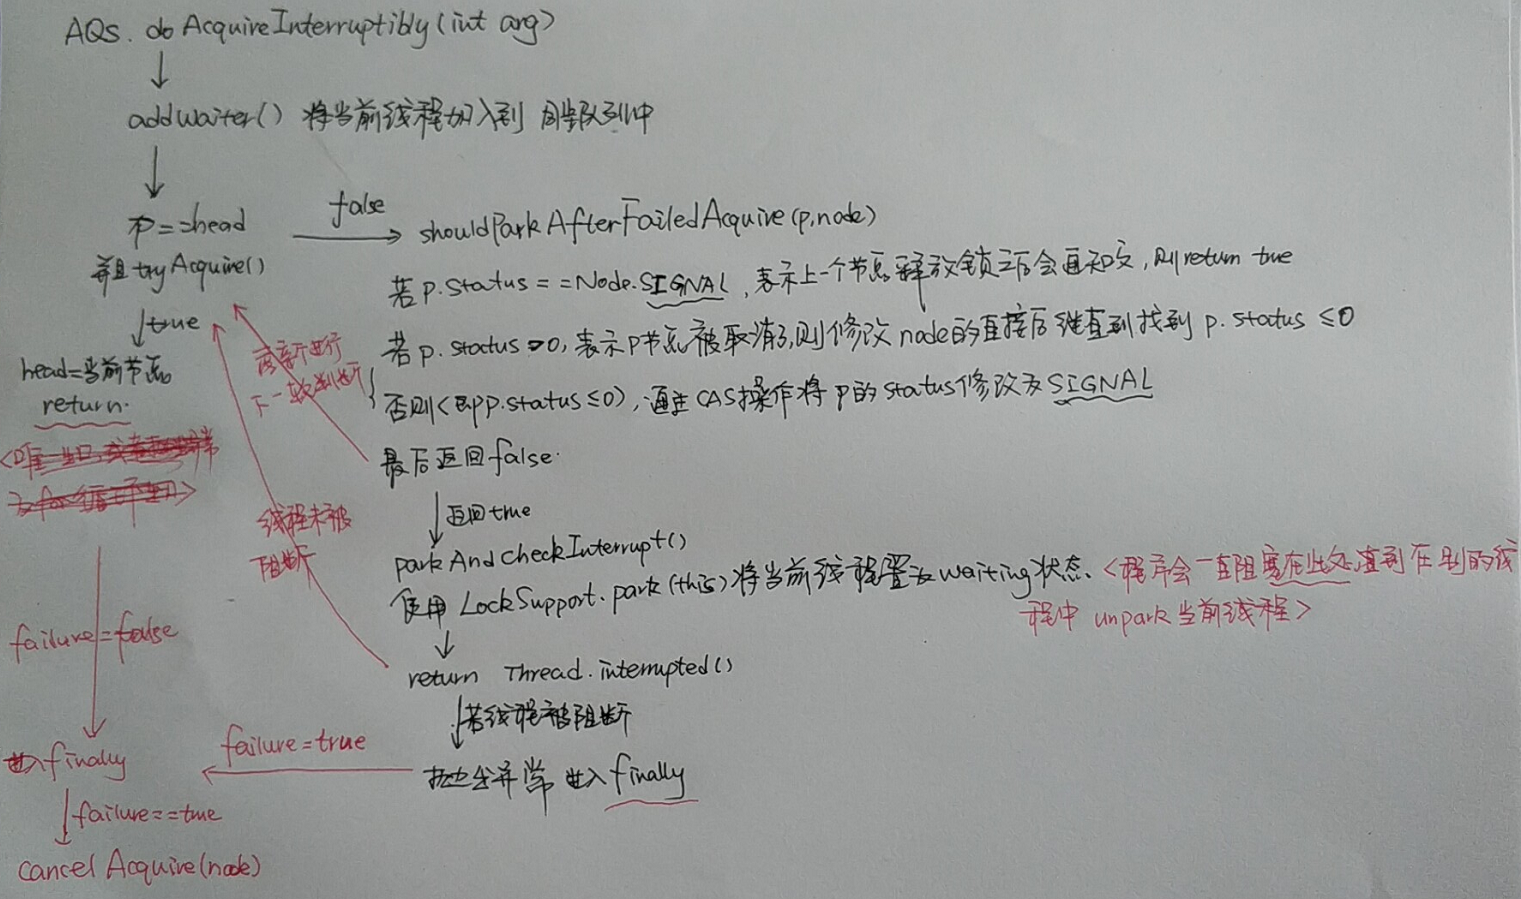 AQS. doAcquireInterruptibly(int arg)
addWaiter() 将当前线程加入到 同步队列中
p==head
并且tryAcquire()
false
shouldParkAfterFailedAcquire(p,node)
若p.status==Node.SIGNAL,表示上一个节点释放锁之后会通知它,则return true
true
若p.status>0,表示p节点被取消了,则修改node的直接后继直到找到p.status≤0
重新进行
下一轮判断
否则(即p.status≤0),通过CAS操作将p的status修改为SIGNAL
head=当前节点
return.
最后返回false.
返回true
线程未被
阻断
parkAndCheckInterrupt()
使用 LockSupport.park(this)将当前线程置为waiting状态.<程序会一直阻塞在此处,直到在别的线
程中 unpark当前线程>
failure=false
return Thread.interrupted()
若线程被阻断
failure=true
抛出异常 进入finally
进入finally
failure==true
cancelAcquire(node)